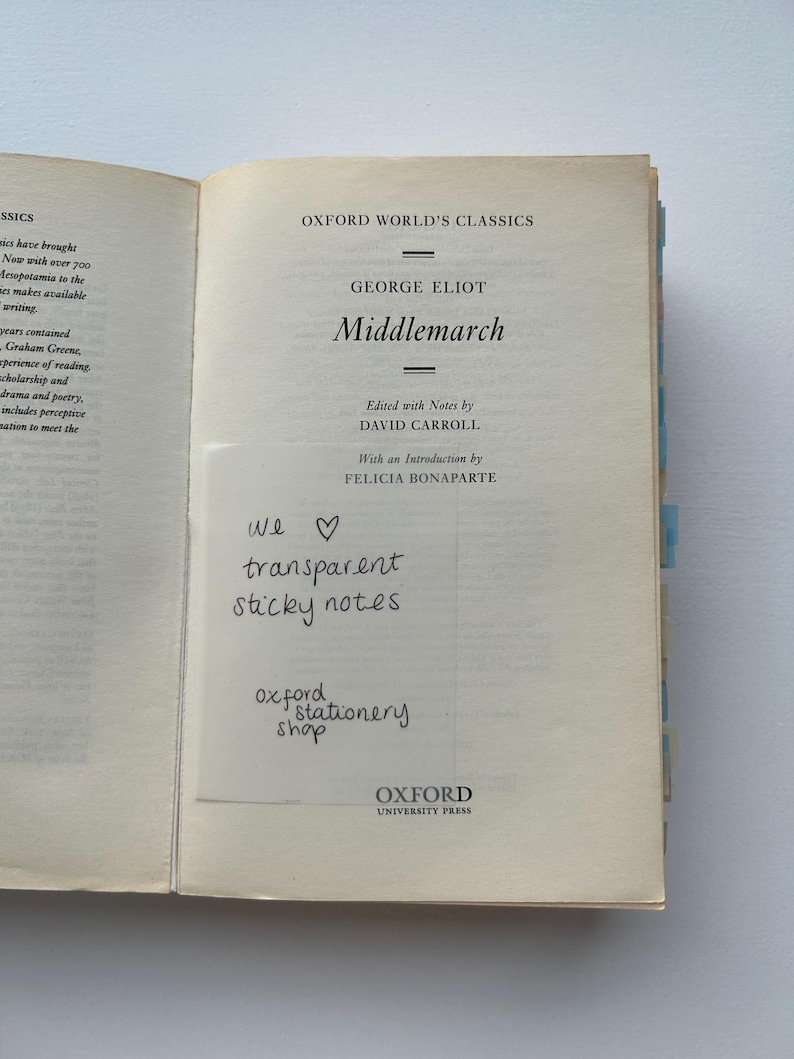 SSICS
sics have brought
Now with over 700
Mesopotamia to the
ies makes available
writing.
years contained
, Graham Greene,
xperience of reading.
scholarship and
drama and poetry,
includes perceptive
mation to meet the
OXFORD WORLD'S CLASSICS
GEORGE ELIOT
Middlemarch
Edited with Notes by
DAVID CARROLL
With an Introduction by
FELICIA BONAPARTE
we ♡
transparent
sticky notes
oxford
stationery
shop
OXFORD
UNIVERSITY PRESS